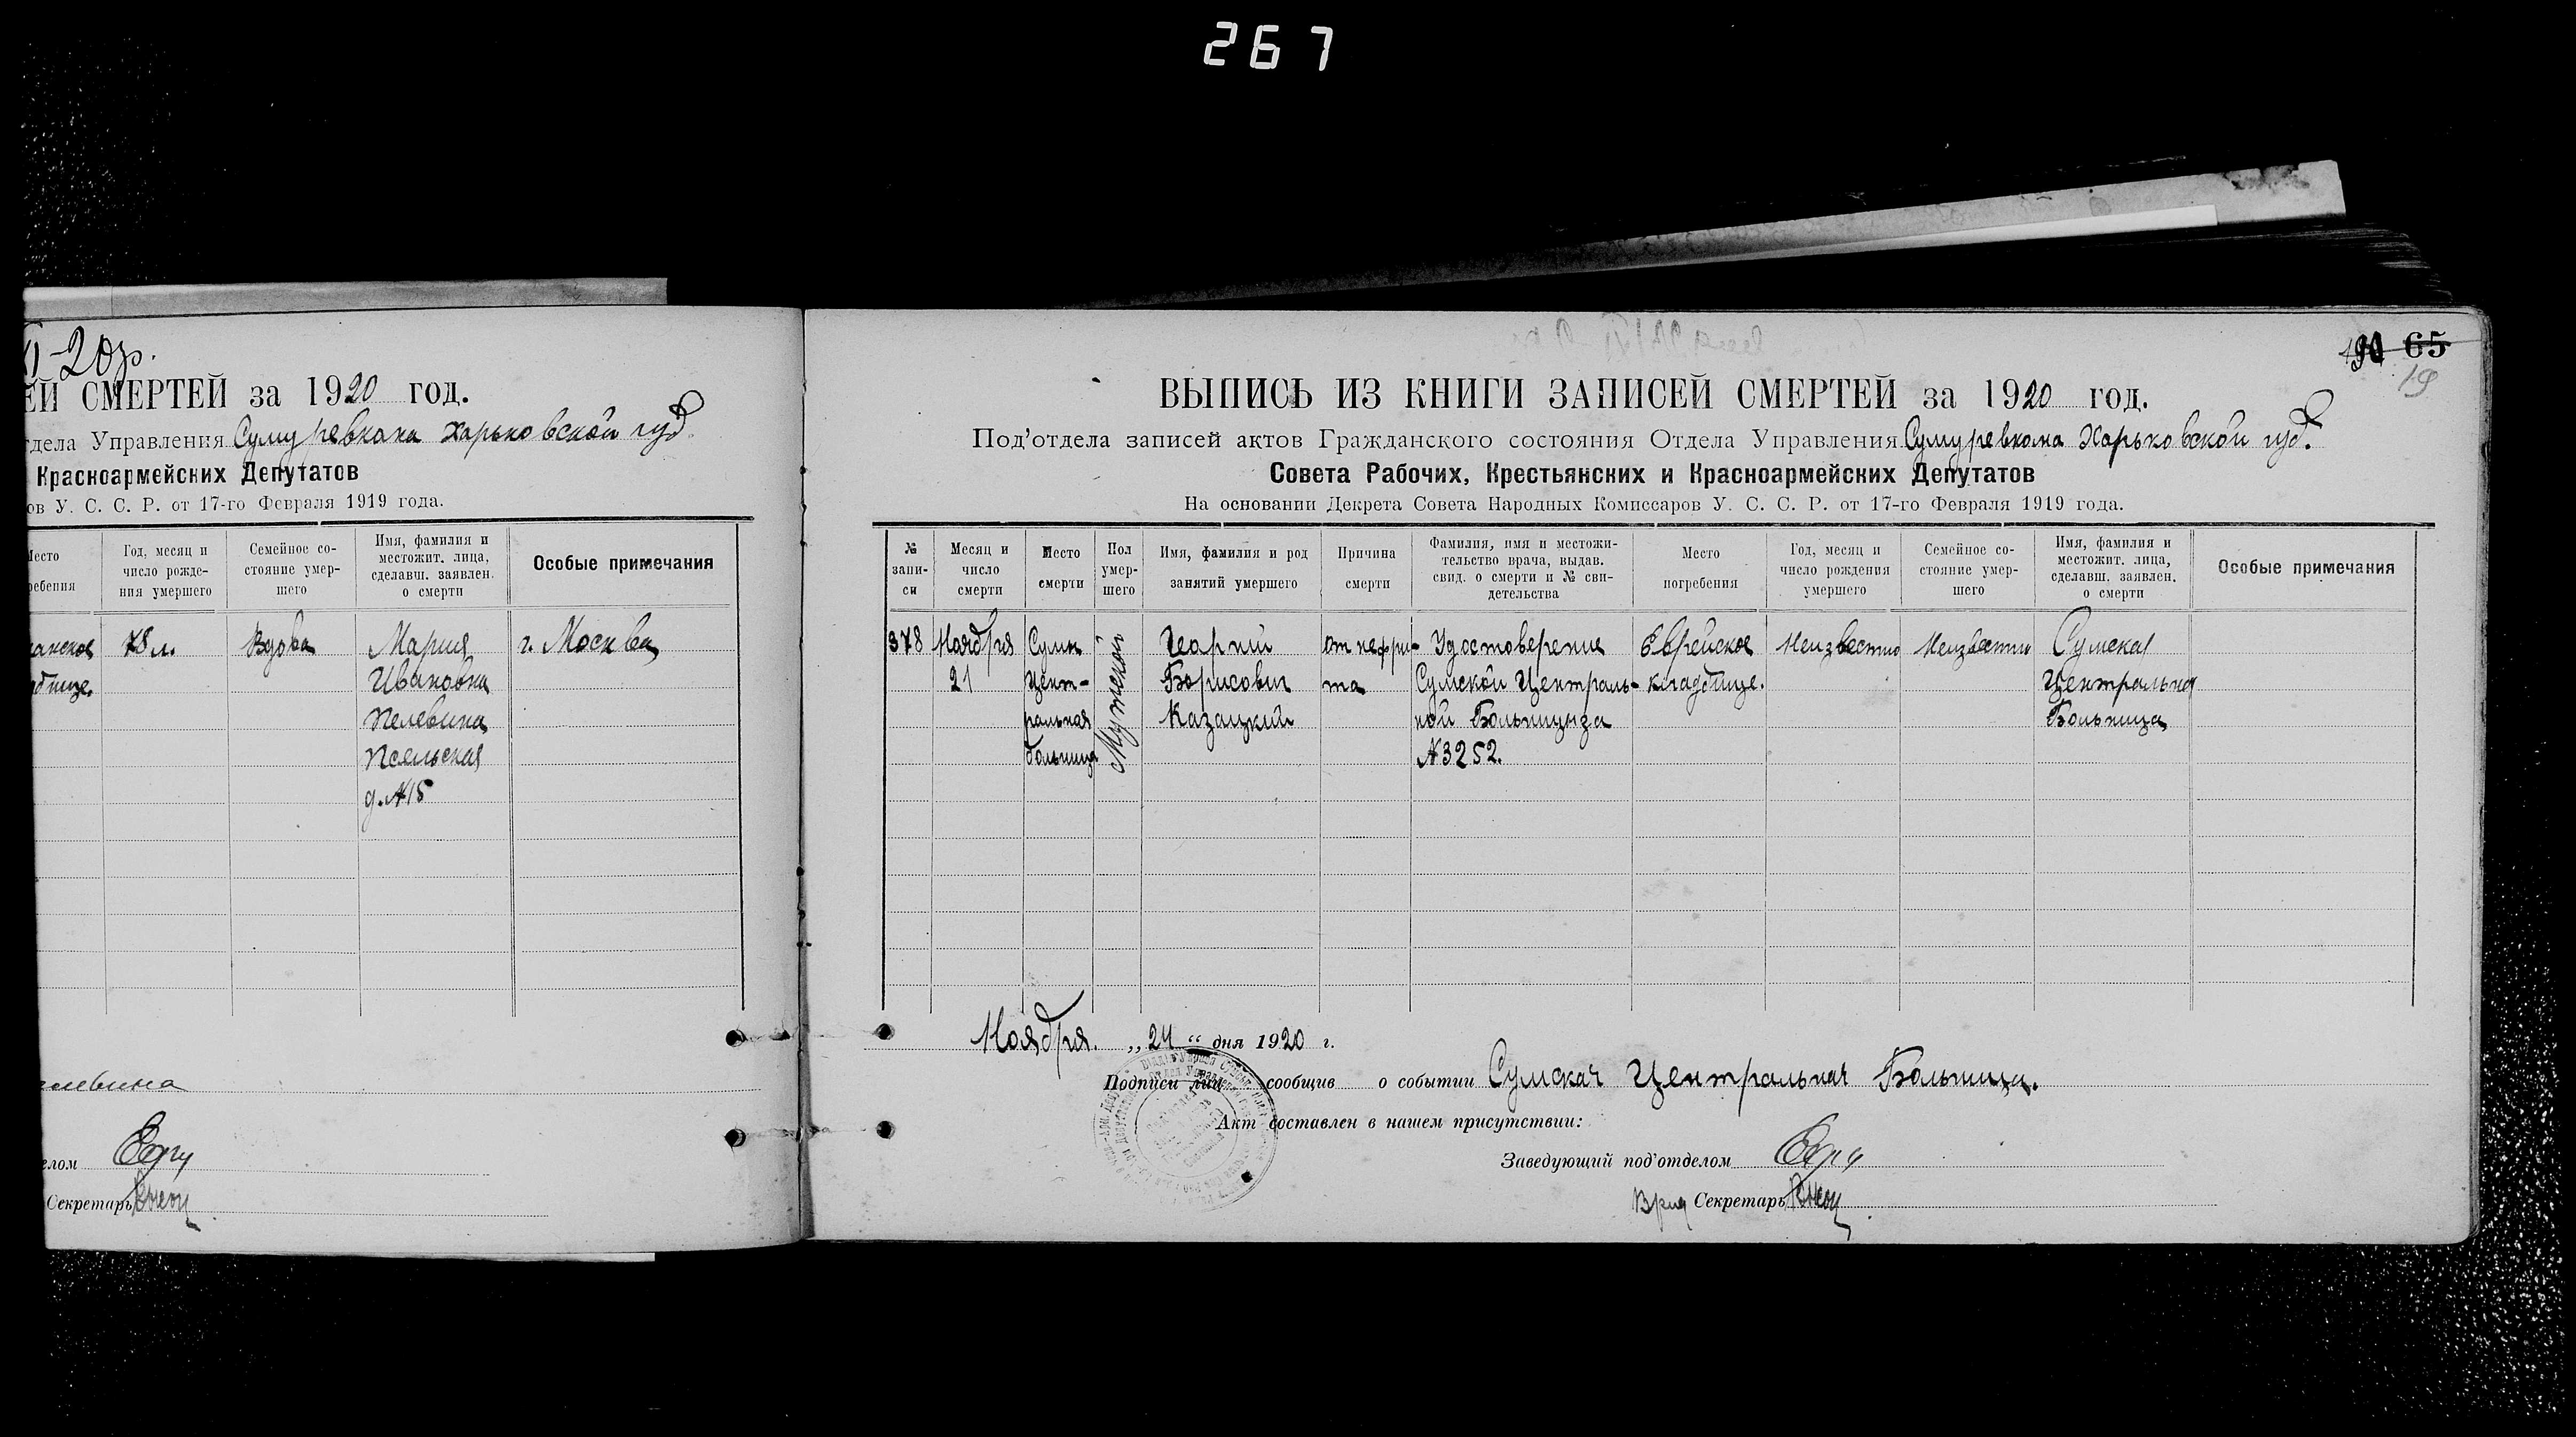 267
-20 г.
ЕЙ СМЕРТЕЙ за 1920 год.
тдела Управления Сумуревкома Харьковской губ.
Красноармейских Депутатов
ов У. С. С. Р. от 17-го Февраля 1919 года.
Место
ребения
Год, месяц и
число рожде-
ния умершего
Семейное со-
стояние умер-
шего
Имя, фамилия и
местожит. лица,
сделавш. заявлен.
о смерти
Особые примечания
78 л.
Вдова
Мария
Ивановна
Пелевина
Псельская
д. №15
г. Москва
елевина
елом
Секретарь
90 65
19
ВЫПИСЬ ИЗ КНИГИ ЗАПИСЕЙ СМЕРТЕЙ за 1920 год.
Под'отдела записей актов Гражданского состояния Отдела Управления Сумуревкома Харьковской губ.
Совета Рабочих, Крестьянских и Красноармейских Депутатов
На основании Декрета Совета Народных Комиссаров У. С. С. Р. от 17-го Февраля 1919 года.
№
запи-
си
Месяц и
число
смерти
Место
смерти
Пол
умер-
шего
Имя, фамилия и род
занятий умершего
Причина
смерти
Фамилия, имя и местожи-
тельство врача, выдав.
свид. о смерти и № сви-
детельства
Место
погребения
Год, месяц и
число рождения
умершего
Семейное со-
стояние умер-
шего
Имя, фамилия и
местожит. лица,
сделавш. заявлен.
о смерти
Особые примечания
378
Ноября
21
Сумы
Цент-
ральная
больница
Мужской
Борисович
Казацкий
От нефри-
та
Удостоверение
Сумской Централь-
ной Больницы за
№3252.
Еврейское
кладбище.
Неизвестно
Неизвестно
Сумская
Центральная
Больница
Ноября. „24“ дня 1920 г.
Подписи лиц сообщив о событии Сумская Центральная Больница.
Акт составлен в нашем присутствии:
Заведующий под'отделом
Врид Секретарь